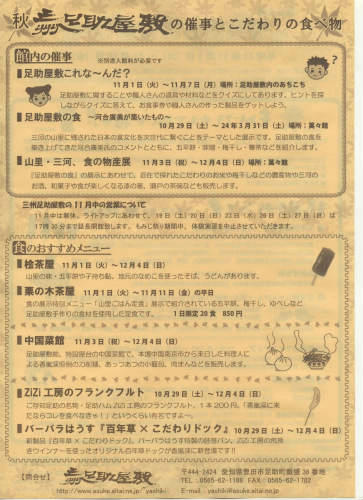 秋 三州足助屋敷 の催事とこだわりの食べ物
館内の催事 ※別途入館料が必要です
■足助屋敷これな〜んだ?
11月1日(火)〜11月7日(月) 場所:足助屋敷内のあちこち
足助屋敷に関することや職人さんの道具や材料などをクイズにしてあります。ヒントを探
しながらクイズに答えて、お食事券や職人さんの作った製品をゲットしよう。
■足助屋敷の食 〜河合廣美が集いたもの〜
10月29日(土)〜24年3月31日(土) 場所:萬々館
三河の山里に残された日本の食文化を次世代に繋ぐことをテーマとした展示です。足助屋敷の食を
築き上げてきた河合廣美氏のコメントとともに、五平餅・味噌・梅干し・鞴寿などを紹介します。
■山里・三河、食の物産展 11月3日(祝)〜12月4日(日) 場所:萬々館
『足助屋敷の食』の展示にあわせて、
のお酒、和菓子や食が楽しくなる漆の器、瀬戸の茶碗なども販売します。
三州足助屋敷の11月中の営業について
11月中は無休。ライトアップにあわせて、19日(土)20日(日)23日(水)26日(土)27日(日)は
17時30分まで延長開館致します。もみじ祭り期間中、体験実演を中止させていただきます。
食のおすすめメニュー
■桧茶屋 11月1日(火)〜12月4日(日)
山里の味・五平餅や子持ち鮎、地元のなめこを使ったそば、うどんがあります。
■栗の木茶屋 11月1日(火)〜11月11日(金)の平日
食の展示特別メニュー「山里ごはん定食」展示で紹介されている五平餅、梅干し、ゆべしなど
足助屋敷手作りの食材を使用した定食です。 1日限定20食 850円
■中国菜館 11月3日(祝)〜12月4日(日)
足助屋敷前、特設屋台の中国菜館で、本場中国南京市から来日した料理人に
よる香嵐渓担担の刀削麺、あっつあつの小籠包、肉まんなどを販売します。
■ZiZi工房のフランクフルト 10月29日(土)〜12月4日(日)
ご存知足助の名物・足助ハムZiZi工房のフランクフルト。1本200円。「香嵐渓に来
たならコレを食べなきゃ!」といつくらい有名ですよ〜。
■バーバラはうす『百年草×こだわりドック』 10月29日(土)〜12月4日(日)
新製品『百年草×こだわりドック』。バーバラはうす特製の胚芽パン、ZiZi工房の荒挽
きウインナーを使ったオリジナル百年草ドックが香嵐渓に新登場です!
【問合せ】 三州足助屋敷 〒444-2424 愛知県豊田市足助町飯盛36番地
TEL.0565-62-1188 FAX.0565-62-1782
http://www.asuke.aitai.ne.jp/~yashiki E-mail yashiki@asuke.aitai.ne.jp